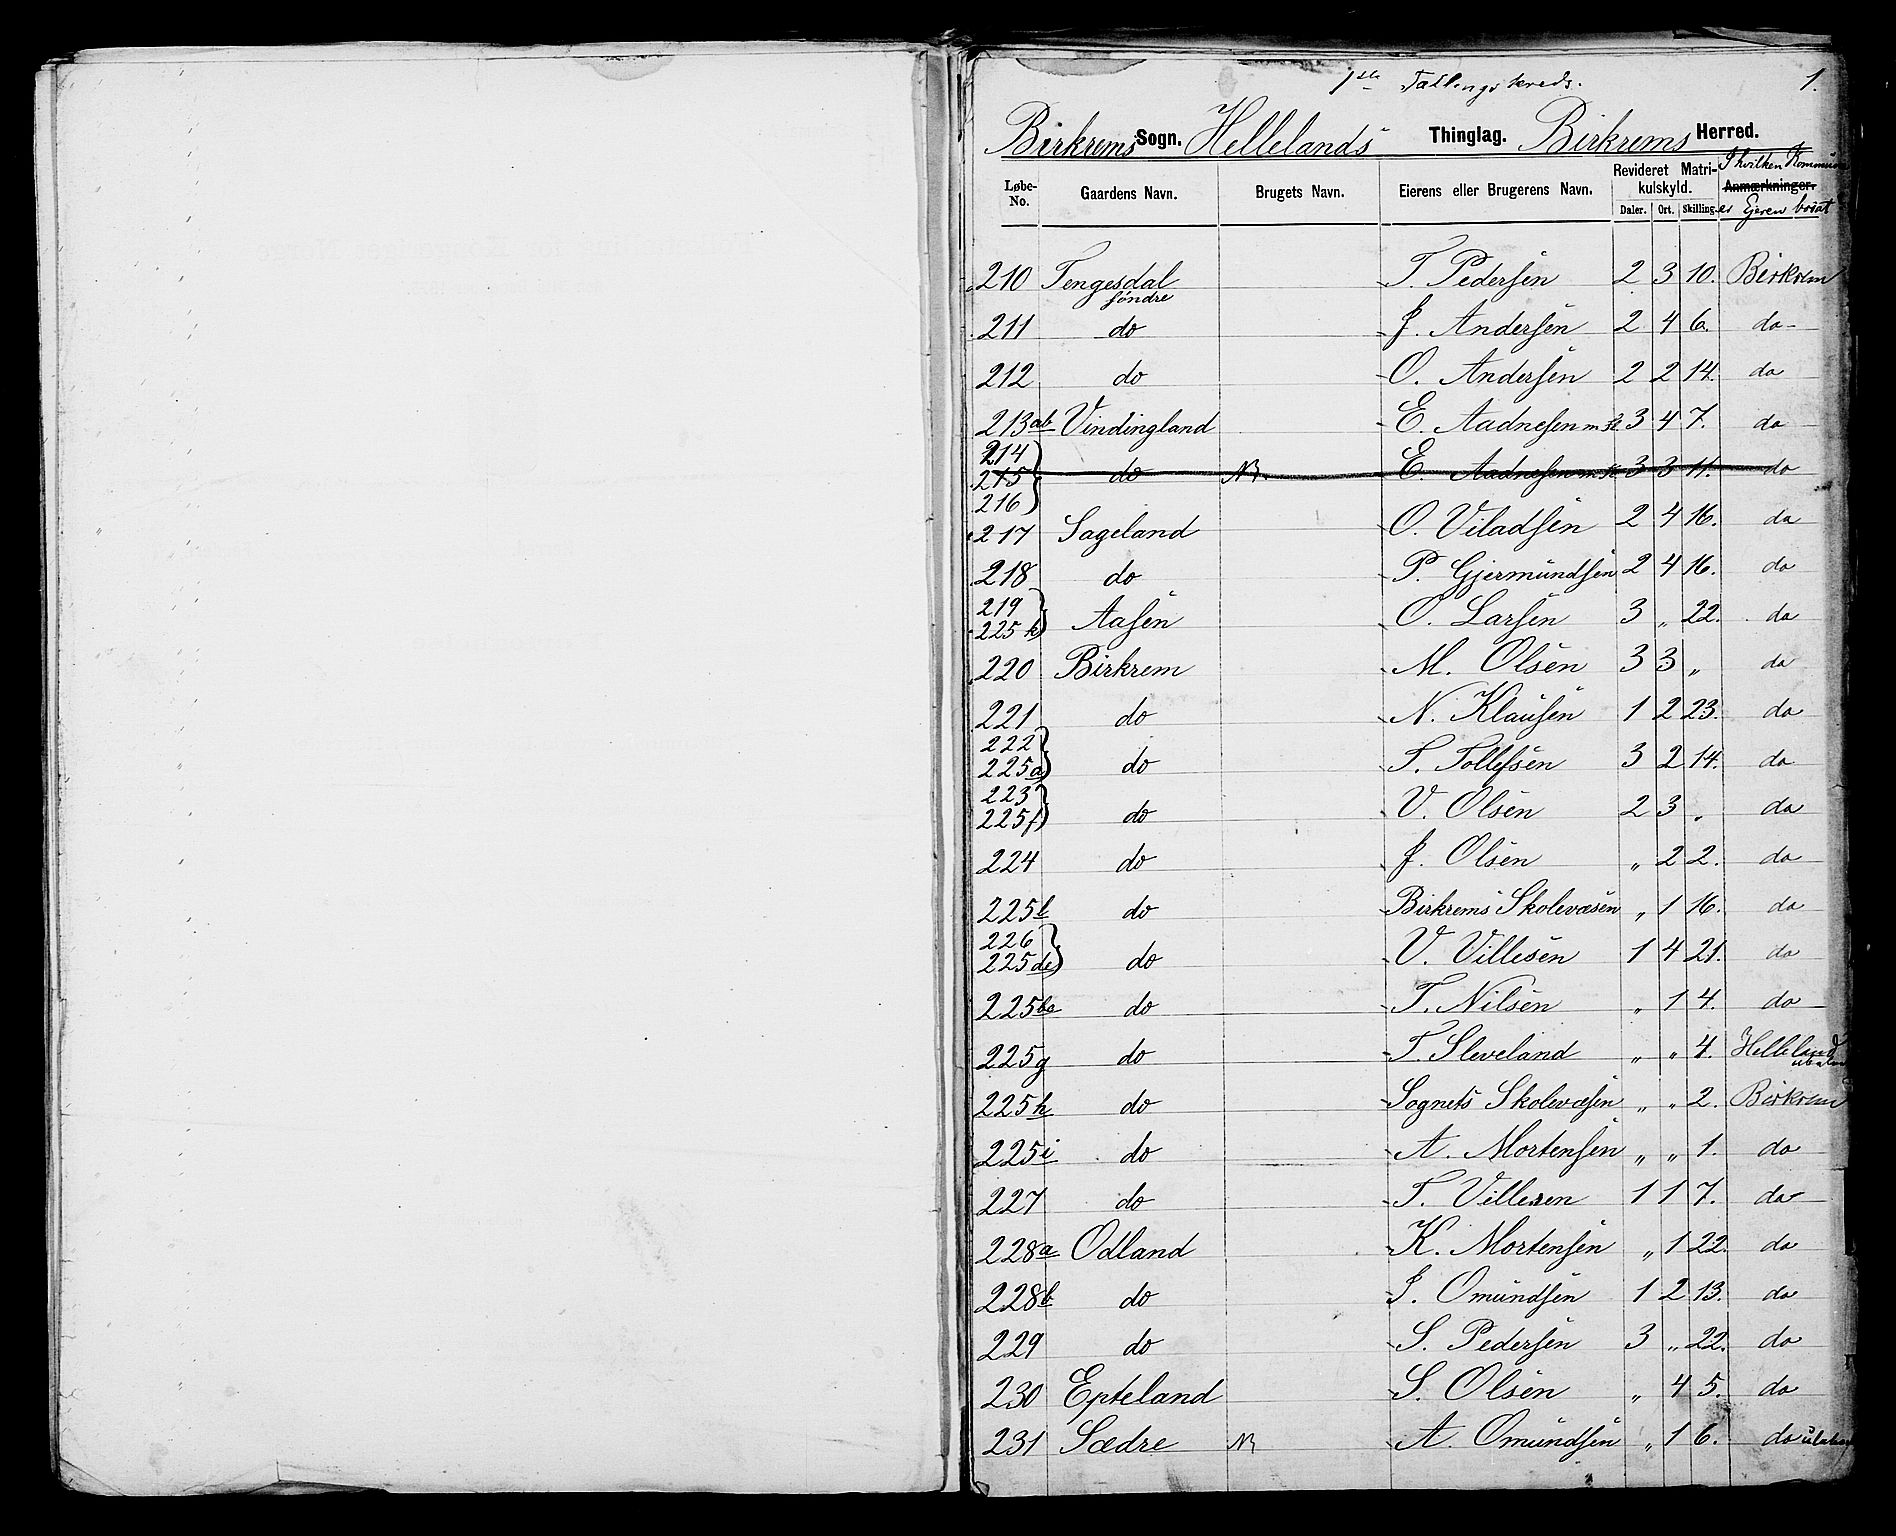 1ste Tællingskreds. 1.
Birkrems Sogn. Hellelands Thinglag. Birkrems Herred.
Løbe-No. Gaardens Navn. Brugets Navn. Eierens eller Brugerens Navn. Revideret Matrikulskyld. Daler. Ort. Skilling. Anmærkninger. I hvilken Kommune er Ejeren bosat
210 Tengesdal søndre T. Pedersen 2 3 10. Birkrem
211 do J. Andersen 2 4 6. do
212 do O. Andersen 2 2 14. do
213 ab Vindingland E. Aadnesen m. fl. 3 4 7. do
214 215 216 do NB. E. Aadnesen m. fl. 3 3 11. do
217 Sageland O. Viladsen 2 4 16. do
218 do P. Gjermundsen 2 4 16. do
219 225 k Aasen O. Larsen 3 „ 22. do
220 Birkrem M. Olsen 3 3 „ do
221 do N. Klausen 1 2 23. do
222 225 a do S. Tollefsen 3 2 14. do
223 225 f do V. Olsen 2 3 „ do
224 do J. Olsen „ 2 2. do
225 l do Birkrems Skolevæsen „ 1 16. do
226 225 de do V. Villesen 1 4 21. do
225 bc do T. Nilsen „ 1 4. do
225 g do T. Sleveland „ „ 4. Helleland
225 h do Sognets Skolevæsen „ „ 2. Birkrem
225 i do A. Mortensen „ „ 1. do
227 do T. Villesen 1 1 7. do
228 a Odland K. Mortensen „ 1 22. do
228 b do J. Omundsen 1 2 13. do
229 do S. Pedersen 3 „ 22. do
230 Epteland S. Olsen „ 4 5. do
231 Sædre NB A. Omundsen „ 1 6. do